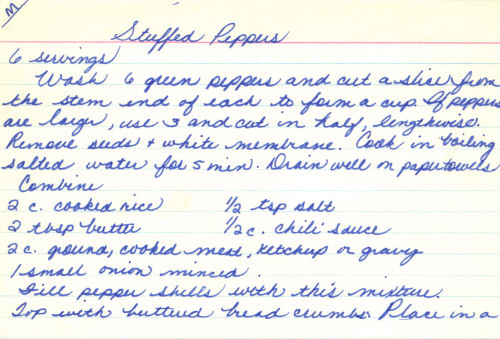 M
Stuffed Peppers
6 servings
Wash 6 green peppers and cut a slice from
the stem end of each to form a cup. If peppers
are large, use 3 and cut in half, lengthwise.
Remove seeds + white membrane. Cook in boiling
salted water for 5 min. Drain well on papertowels
Combine
2 c. cooked rice 1/2 tsp salt
2 tbsp butter 1/2 c. chili sauce
2 c. ground, cooked meat, ketchup or gravy
1 small onion minced.
Fill pepper shells with this mixture.
Top with buttered bread crumbs. Place in a